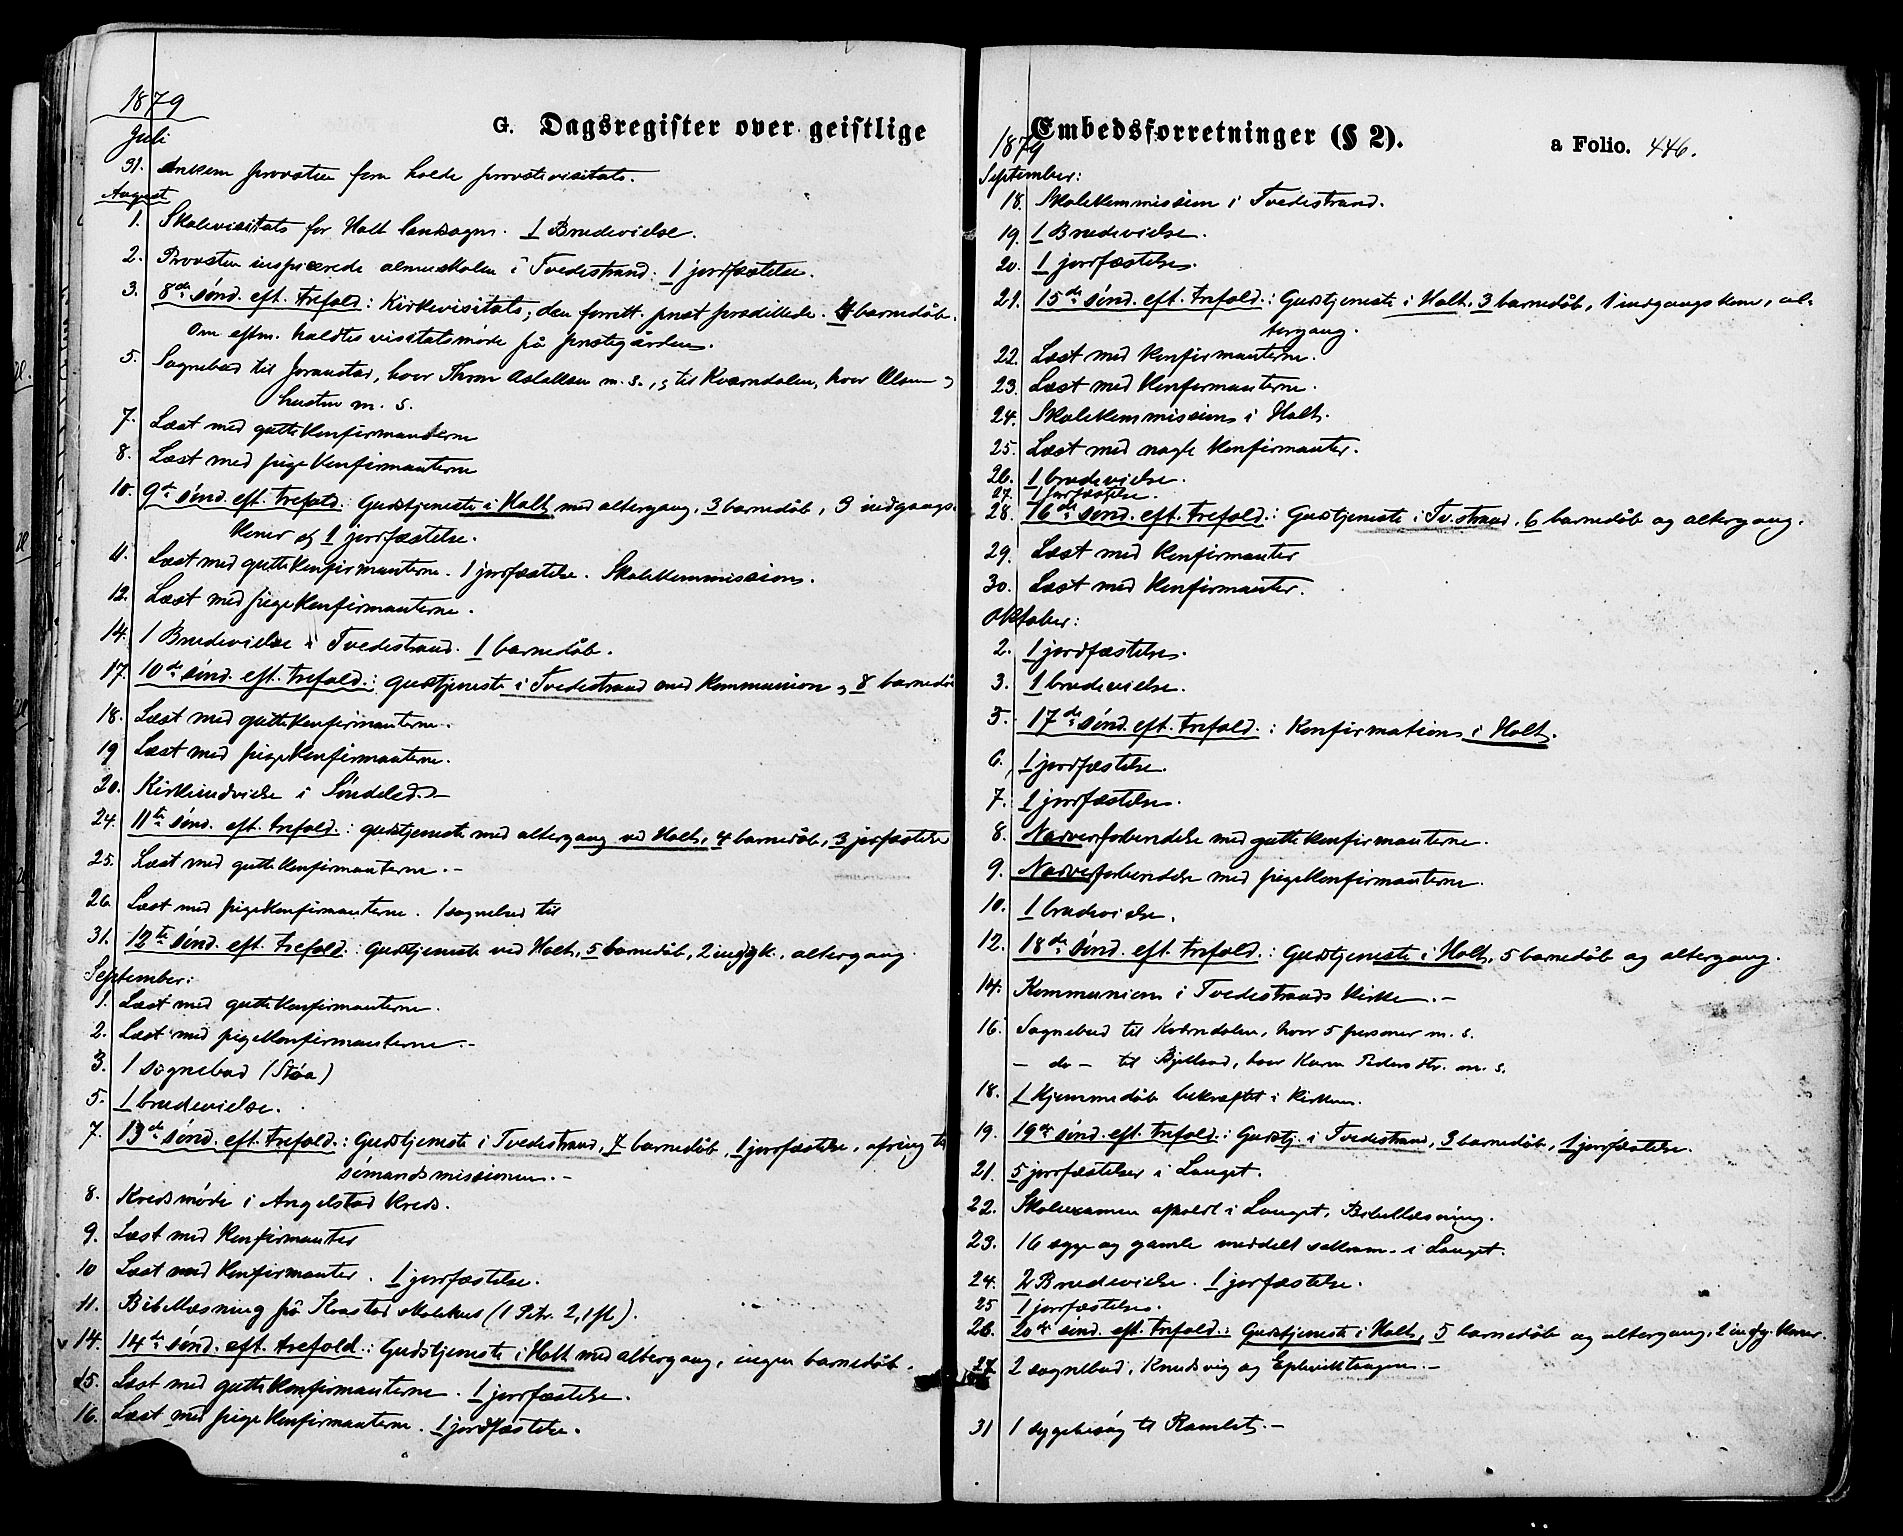 1879
G. Dagsregister over geistlige
Juli
31. Ankom provsten for at holde provstevisitats.
August
1. Skolevisitats for Holt landsogn. 1 Brudevielse.
2. Provsten inspicerede almueskolen i Tvedestrand. 1 jordfæstelse.
3. 8de sønd. eft. trefold.: Kirkevisitats; den forrett. præst prædikede. 4 barnedåb.
Om eftm. holdtes visitatsmøde på præstegården.
5. Sognebud til Joranstad, hvor Thron Aslaksen m. s., og til Kværndalen, hvor Olsen og
hustru m. s.
7. Læst med guttekonfirmanterne
8. Læst med pigekonfirmanterne
10. 9de sønd. eft. trefold.: Gudstjeneste i Holt med altergang, 3 barnedåb, 3 indgangs-
koner og 1 jordfæstelse.
11. Læst med guttekonfirmanterne. 1 jordfæstelse. Skolekommission.
12. Læst med pigekonfirmanterne.
14. 1 Brudevielse i Tvedestrand. 1 barnedåb.
17. 10de sønd. eft. trefold.: gudstjeneste i Tvedestrand med kommunion og 8 barnedåb
18. Læst med guttekonfirmanterne.
19 Læst med pigekonfirmanterne.
20. Kirkeindvielse i Søndeled. –
24. 11te sønd. eft. trefold.: gudstjeneste med altergang ved Holt, 4 barnedåb, 3 jordfæstelse
25. Læst med guttekonfirmanterne. –
26. Læst med pigekonfirmanterne. 1 sognebud til
31. 12te sønd. eft. trefold.: Gudstjeneste ved Holt, 5 barnedåb, 2 indgk., altergang.
September:
1. Læst med guttekonfirmanterne.
2. Læst med pigekonfirmanterne. –
3. 1 sognebud (Støa)
5. 1 brudevielse.
7. 13de sønd. eft. trefold.: Gudstjeneste i Tvedestrand, 7 barnedåb, 1 jordfæstelse, ofring til
sømandsmissionen. –
8. Kredsmøde i Angelstad kreds.
9. Læst med konfirmanter
10 Læst med konfirmanter. 1 jordfæstelse.
11. Bibellæsning på Kvastad skolehus (1 Petr. 2, 1 fl).
14. 14de sønd. eft. trefold.: Gudstjeneste i Holt med altergang, ingen barnedåb.
15. Læst med guttekonfirmanterne. 1 jordfæstelse.
16. Læst med pigekonfirmanterne. 1 jordfæstelse.
Embedsforretninger (§ 2).
a Folio. 446.
1879
September:
18. Skolekommission i Tvedestrand.
19. 1 Brudevielse.
20. 1 jordfæstelse.
21. 15de sønd. eft. trefold.: Gudstjeneste i Holt, 3 barnedåb, 1 indgangskone, al-
tergang.
22. Læst med konfirmanterne.
23. Læst med konfirmanterne.
24. Skolekommission i Holt.
25. Læst med nogle konfirmanter.
26. 1 brudevielse.
27. 1 jordfæstelse.
28. 16de sønd. eft. trefold.: Gudstjeneste i Tv.strand, 6 barnedåb og altergang.
29. Læst med konfirmanter
30. Læst med konfirmanter.
Oktober:
2. 1 jordfæstelse.
3. 1 brudevielse.
5. 17de sønd. eft. trefold.: Konfirmation i Holt.
6. 1 jordfæstelse.
7. 1 jordfæstelse.
8. Nadverforberedelse med guttekonfirmanterne.
9. Nadverforberedelse med pigekonfirmanterne.
10. 1 brudevielse.
12. 18de sønd. eft. trefold.: Gudstjeneste i Holt, 5 barnedåb og altergang.
14. Kommunion i Tvedestrands kirke. –
16. Sognebud til Kværndalen, hvor 5 personer m. s.
– do – til Bjelland, hvor Karen Pedersdtr. m. s.
18. 1 Hjemmedåb bekræftet i kirken.
19. 19de sønd. eft. trefold.: Gudstj. i Tvedestrand, 3 barnedåb, 1 jordfæstelse.
21. 5 jordfæstelser i Lauget.
22. Skoleexamen afholdt i Lauget, Bibellæsning.
23. 16 syge og gamle meddelt sakram. i Lauget.
24. 2 Brudevielse. 1 jordfæstelse.
25 1 jordfæstelse.
26. 20de sønd. eft. trefold.: Gudstjeneste i Holt, 5 barnedåb og altergang, 2 indg. koner.
27 2 sognebud, Knudsvig og Eplviktangen. –
31 1 sygebesøg til Ramlet. –